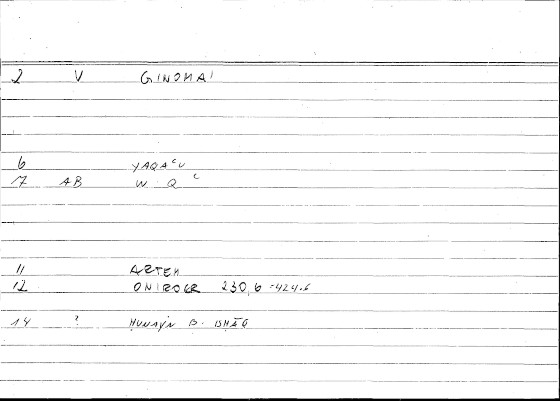 2 V GINOMAI
6 YAQAᶜU
17 AB W Q ᶜ
11 ARTEM
12 ONIROCR 230,6 = 424.6
14 ? ḤUNAYN B. ISḤĀQ